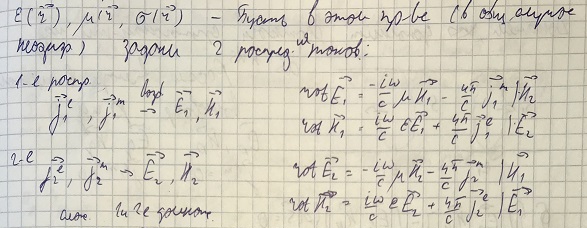 ε(r⃗), μ(r⃗), σ(r⃗) – Пусть в этом пр-ве (в общ. случае
неоднор) заданы 2 распред-ия токов:
1-е распр. j⃗₁ᵉ, j⃗₁ᵐ возб → E⃗₁, H⃗₁
rot E⃗₁ = -iω/c μH⃗₁ - 4π/c j⃗₁ᵐ | H⃗₂
rot H⃗₁ = iω/c εE⃗₁ + 4π/c j⃗₁ᵉ | E⃗₂
2-е j⃗₂ᵉ, j⃗₂ᵐ → E⃗₂, H⃗₂
rot E⃗₂ = -iω/c μH⃗₂ - 4π/c j⃗₂ᵐ | H⃗₁
rot H⃗₂ = iω/c εE⃗₂ + 4π/c j⃗₂ᵉ | E⃗₁